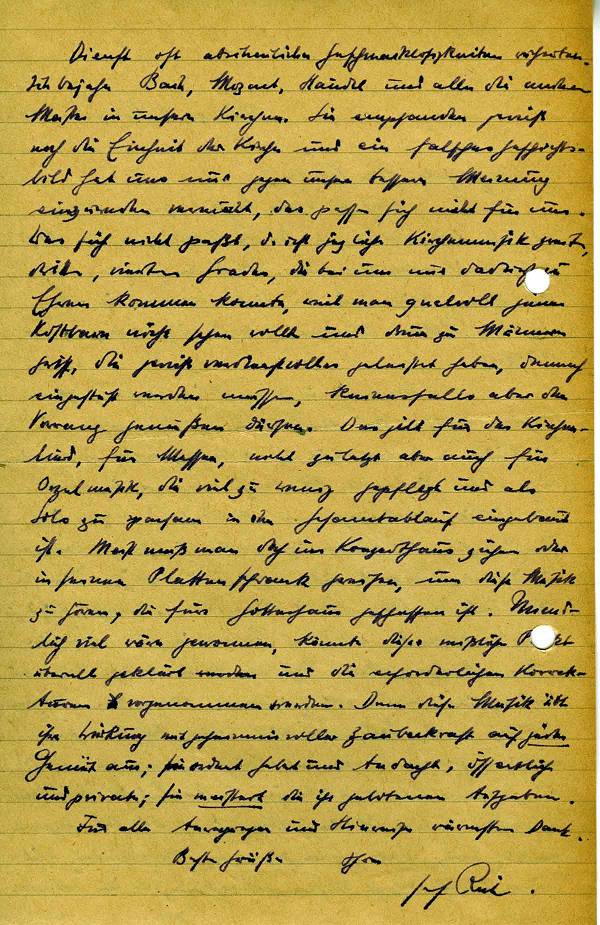 Dienst oft abscheulichen Geschmacklosigkeiten
Ich bejahe Bach, Mozart, Händel und alle die anderen
Meister in unseren Kirchen. Sie empfanden gewiß
noch die Einheit der Kirche und ein falsches Geschichts-
bild hat uns nur gegen unsere bessere Meinung
einzureden vermocht, das passe sich nicht für uns.
Was sich nicht paßt, das ist jegliche Kirchenmusik zweiten,
dritten, vierten Grades, die bei uns nur dadurch zu
Ehren kommen konnte, weil man quellvoll
Kostbares nicht sehen wollte und dann zu Männern
griff, die gewiß verdienstvolles geleistet haben, demnach
eingestuft werden müssen, keinesfalls aber den
Vorrang genießen dürfen. Das gilt für das Kirchen-
lied, für Messen, nicht zuletzt aber auch für
Orgelmusik, die viel zu wenig gepflegt und als
Solo zu sparsam in den Gesamtablauf eingebaut
ist. Meist muß man doch ins Konzerthaus gehen oder
in seinen Plattenschrank greifen, um diese Musik
zu hören, die fürs Gotteshaus geschaffen ist. Unend-
lich viel wäre gewonnen, könnte dieser mißliche Punkt
überall geklärt werden und die erforderlichen Korrek-
turen vorgenommen werden. Denn diese Musik übt
ihre Wirkung mit geheimnisvoller Zauberkraft auf jedes
Gemüt aus; sie ordnet Gebet und Andacht, öffentlich
und privat; sie meistert die ihr gebotenen Aufgaben.
Für alle Anregungen und Hinweise wärmsten Dank.
Beste Grüße Ihr